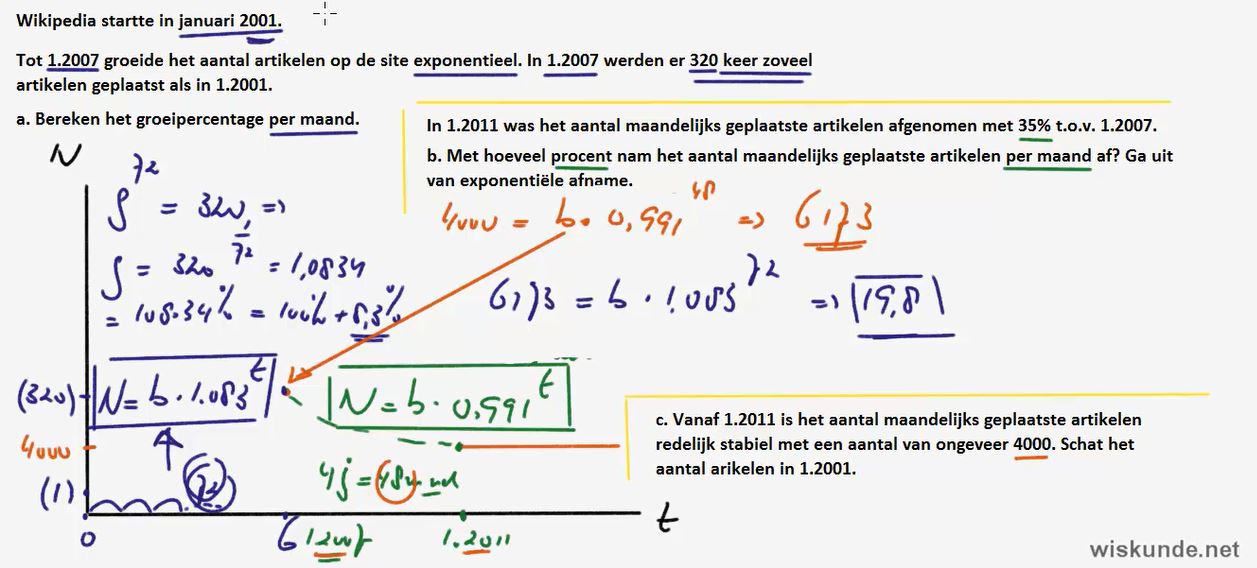 Wikipedia startte in januari 2001.
Tot 1.2007 groeide het aantal artikelen op de site exponentieel. In 1.2007 werden er 320 keer zoveel
artikelen geplaatst als in 1.2001.
a. Bereken het groeipercentage per maand.
In 1.2011 was het aantal maandelijks geplaatste artikelen afgenomen met 35% t.o.v. 1.2007.
b. Met hoeveel procent nam het aantal maandelijks geplaatste artikelen per maand af? Ga uit
van exponentiële afname.
N
g^72 = 320, =>
g = 320^1/72 = 1,0834
= 108.34% = 100% + 8,3%
4000 = b. 0,991^48 => 6173
6173 = b . 1.083^72 => 19,8
(320) N = b . 1.083^t
N = b . 0,991^t
c. Vanaf 1.2011 is het aantal maandelijks geplaatste artikelen
redelijk stabiel met een aantal van ongeveer 4000. Schat het
aantal arikelen in 1.2001.
4000
(1) 72
4j = 48
0 6 1.2007 1.2011 t
wiskunde.net